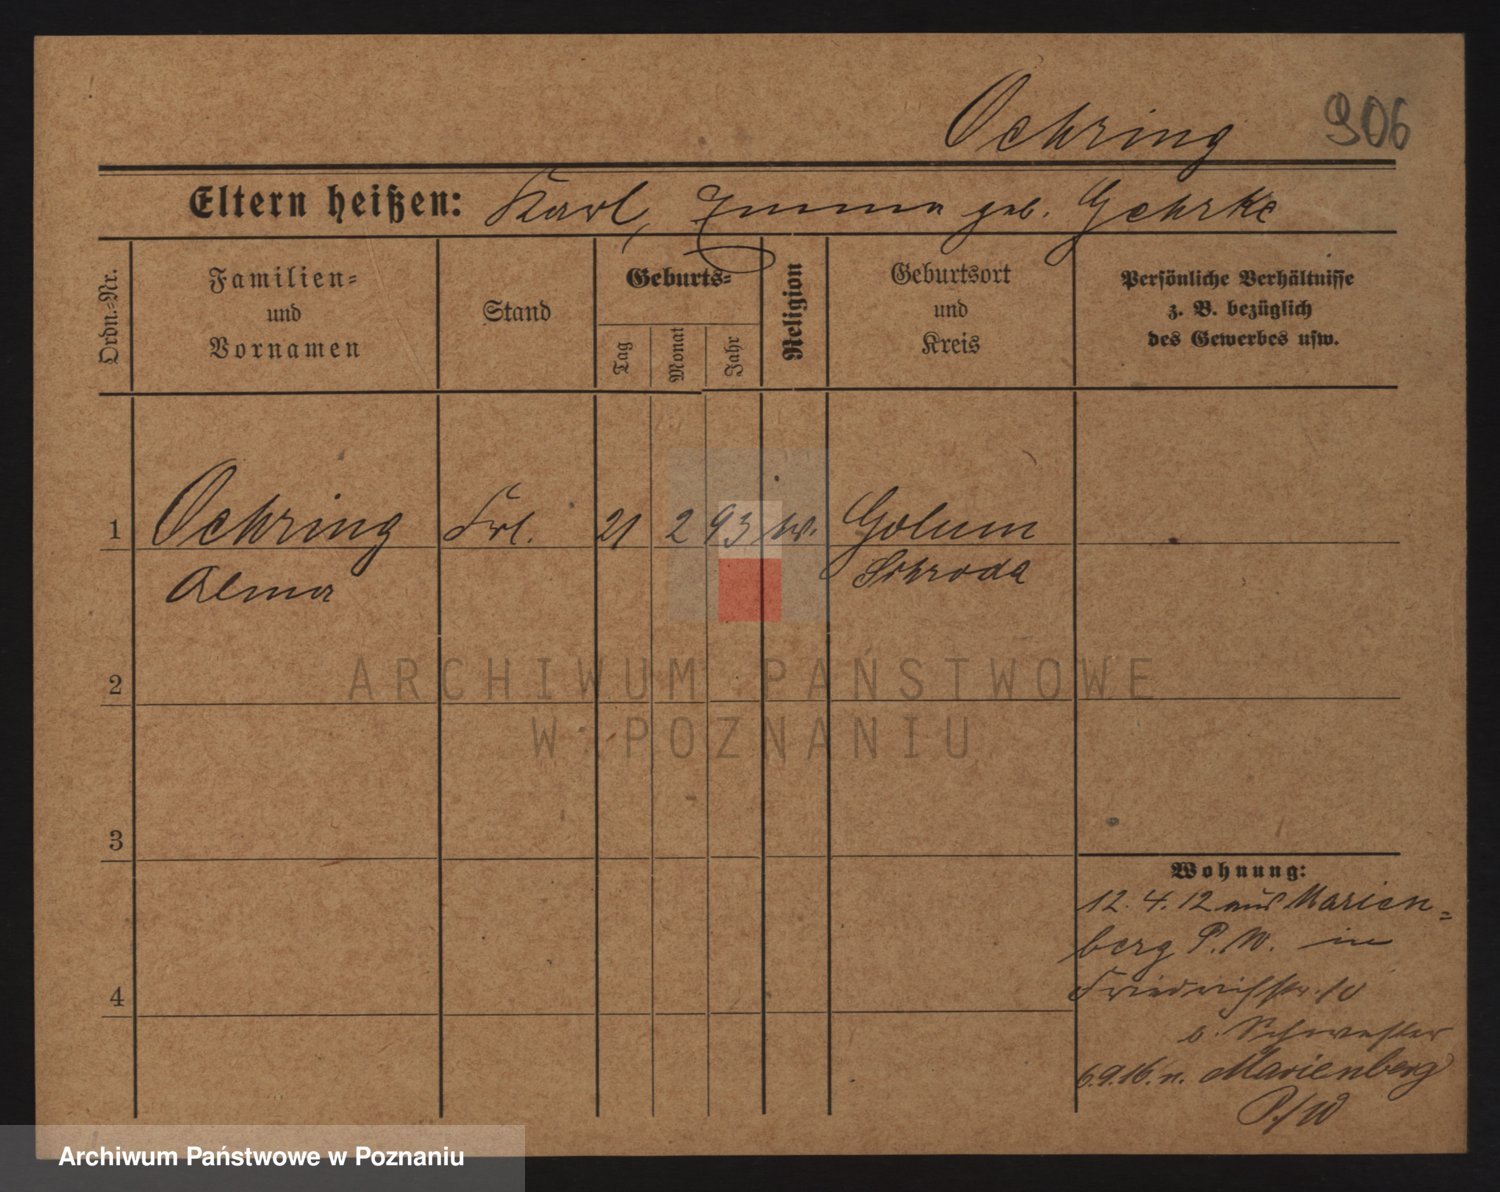 Oehring 906
Eltern heißen: Karl, Emma geb. Gehrke
Ordn.-Nr.
Familien-
und
Vornamen
Stand
Geburts-
Tag
Monat
Jahr
Religion
Geburtsort
und
Kreis
Persönliche Verhältnisse
z. B. bezüglich
des Gewerbes usw.
1 Oehring Frl. 21 2 93 Golum
Alma Schroda
2
3
4
Wohnung:
12. 4. 12 aus Marien=
berg P. W. in
Friedrichstr. 10
b. Schwester
6.9.16. n. Marienberg
P./W
ARCHIWUM PAŃSTWOWE
W POZNANIU
Archiwum Państwowe w Poznaniu